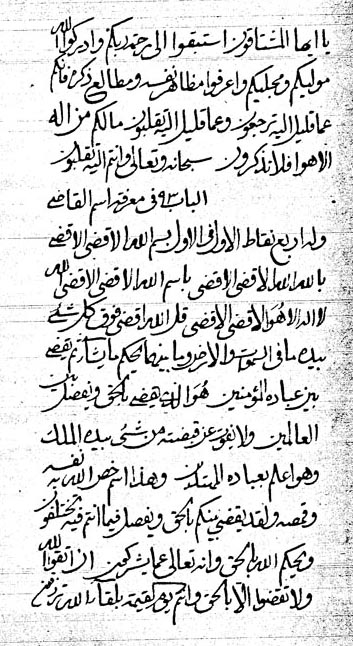 يا ايها المشتاقون استبقوا الى رحمة ربكم وادركوا الله
موليكم ومجليكم واعرفوا مظاهر نفسه ومطالع ذكره فانكم
عما قليل اليه ترجعون وعما قليل اليه تقلبون مالكم من اله
الا هو افلا تذكرون سبحانه وتعالى وانتم اليه تقلبون
الباب ٩٣ فى معرفة اسم القاضى
وله اربع نقاط الاول فى الاول بسم الله الاقضى الاقضى
بالله الله الاقضى الاقضى باسم الله الاقضى الاقضى الله
لا اله الا هو الاقضى الاقضى قل الله اقضى فوق كل شئ
بيده ما فى السموات والارض وما بينهما يحكم ما يشاء ثم يقضى
بين عباده المؤمنين هو الذى يقضى بالحق ويفصل بين
العالمين ولا يفوت عن قبضته من شئ بيده الملك
وهو اعلم بعباده وهذا اسم خص الله به نفسه
ولقد يقضى بينكم بالحق ويفصل فيما انتم فيه تختلفون
ويحكم الله بالحق وانه تعالى عما يشركون ان اتقوا الله
ولا تقضوا الا بالحق وانتم يوم القيمة بلقاء الله